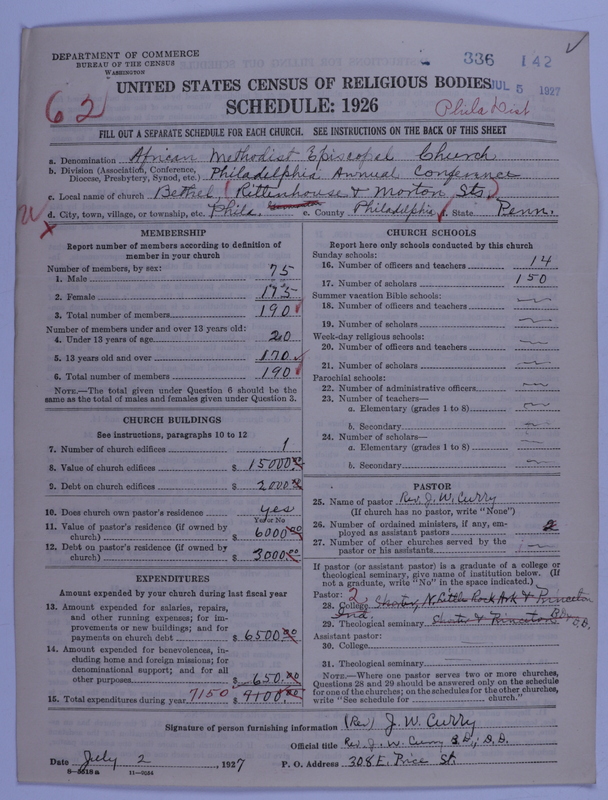 DEPARTMENT OF COMMERCE
BUREAU OF THE CENSUS
WASHINGTON
336 142
UNITED STATES CENSUS OF RELIGIOUS BODIES
JUL 5 1927
SCHEDULE: 1926
62
Phila Dist
FILL OUT A SEPARATE SCHEDULE FOR EACH CHURCH. SEE INSTRUCTIONS ON THE BACK OF THIS SHEET
a. Denomination African Methodist Episcopal Church
b. Division (Association, Conference, Diocese, Presbytery, Synod, etc.) Philadelphia Annual Conference
c. Local name of church Bethel (Rittenhouse & Morton Sts.)
d. City, town, village, or township, etc. Phila. e. County Philadelphia f. State Penn.
MEMBERSHIP
Report number of members according to definition of
member in your church
Number of members, by sex:
1. Male 75
2. Female
3. Total number of members 190
Number of members under and over 13 years old:
4. Under 13 years of age 20
5. 13 years old and over 170
6. Total number of members 190
NOTE.—The total given under Question 6 should be the
same as the total of males and females given under Question 3.
CHURCH BUILDINGS
See instructions, paragraphs 10 to 12
7. Number of church edifices 1
8. Value of church edifices $ 15000.00
9. Debt on church edifices $ 2000.00
10. Does church own pastor's residence? yes
Yes or No
11. Value of pastor's residence (if owned by
church) $ 6000.00
12. Debt on pastor's residence (if owned by
church) $ 3000.00
EXPENDITURES
Amount expended by your church during last fiscal year
13. Amount expended for salaries, repairs,
and other running expenses; for im-
provements or new buildings; and for
payments on church debt $ 6500.00
14. Amount expended for benevolences, in-
cluding home and foreign missions; for
denominational support; and for all
other purposes $ 650.00
15. Total expenditures during year 7150 $ 9100.00
CHURCH SCHOOLS
Report here only schools conducted by this church
Sunday schools:
16. Number of officers and teachers 14
17. Number of scholars 150
Summer vacation Bible schools:
18. Number of officers and teachers
19. Number of scholars
Week-day religious schools:
20. Number of officers and teachers
21. Number of scholars
Parochial schools:
22. Number of administrative officers
23. Number of teachers—
a. Elementary (grades 1 to 8)
b. Secondary
24. Number of scholars—
a. Elementary (grades 1 to 8)
b. Secondary
PASTOR
25. Name of pastor Rev. J. W. Curry
(If church has no pastor, write "None")
26. Number of ordained ministers, if any, em-
ployed as assistant pastors
27. Number of other churches served by the
pastor or his assistants
If pastor (or assistant pastor) is a graduate of a college or
theological seminary, give name of institution below. (If
not a graduate, write "No" in the space indicated.)
Pastor: 2
28. College Shorter N. Little Rock Ark & Princeton
Ind.
29. Theological seminary Shorter & Princeton B.D. D.D.
Assistant pastor:
30. College
31. Theological seminary
NOTE.—Where one pastor serves two or more churches,
Questions 28 and 29 should be answered only on the schedule
for one of the churches; on the schedules for the other churches,
write "See schedule for church."
Signature of person furnishing information (Rev) J. W. Curry
Official title Rev. J. W. Curry B.D., D.D.
Date July 2, 1927 P. O. Address 308 E. Price St.
8-5518a 11-9034